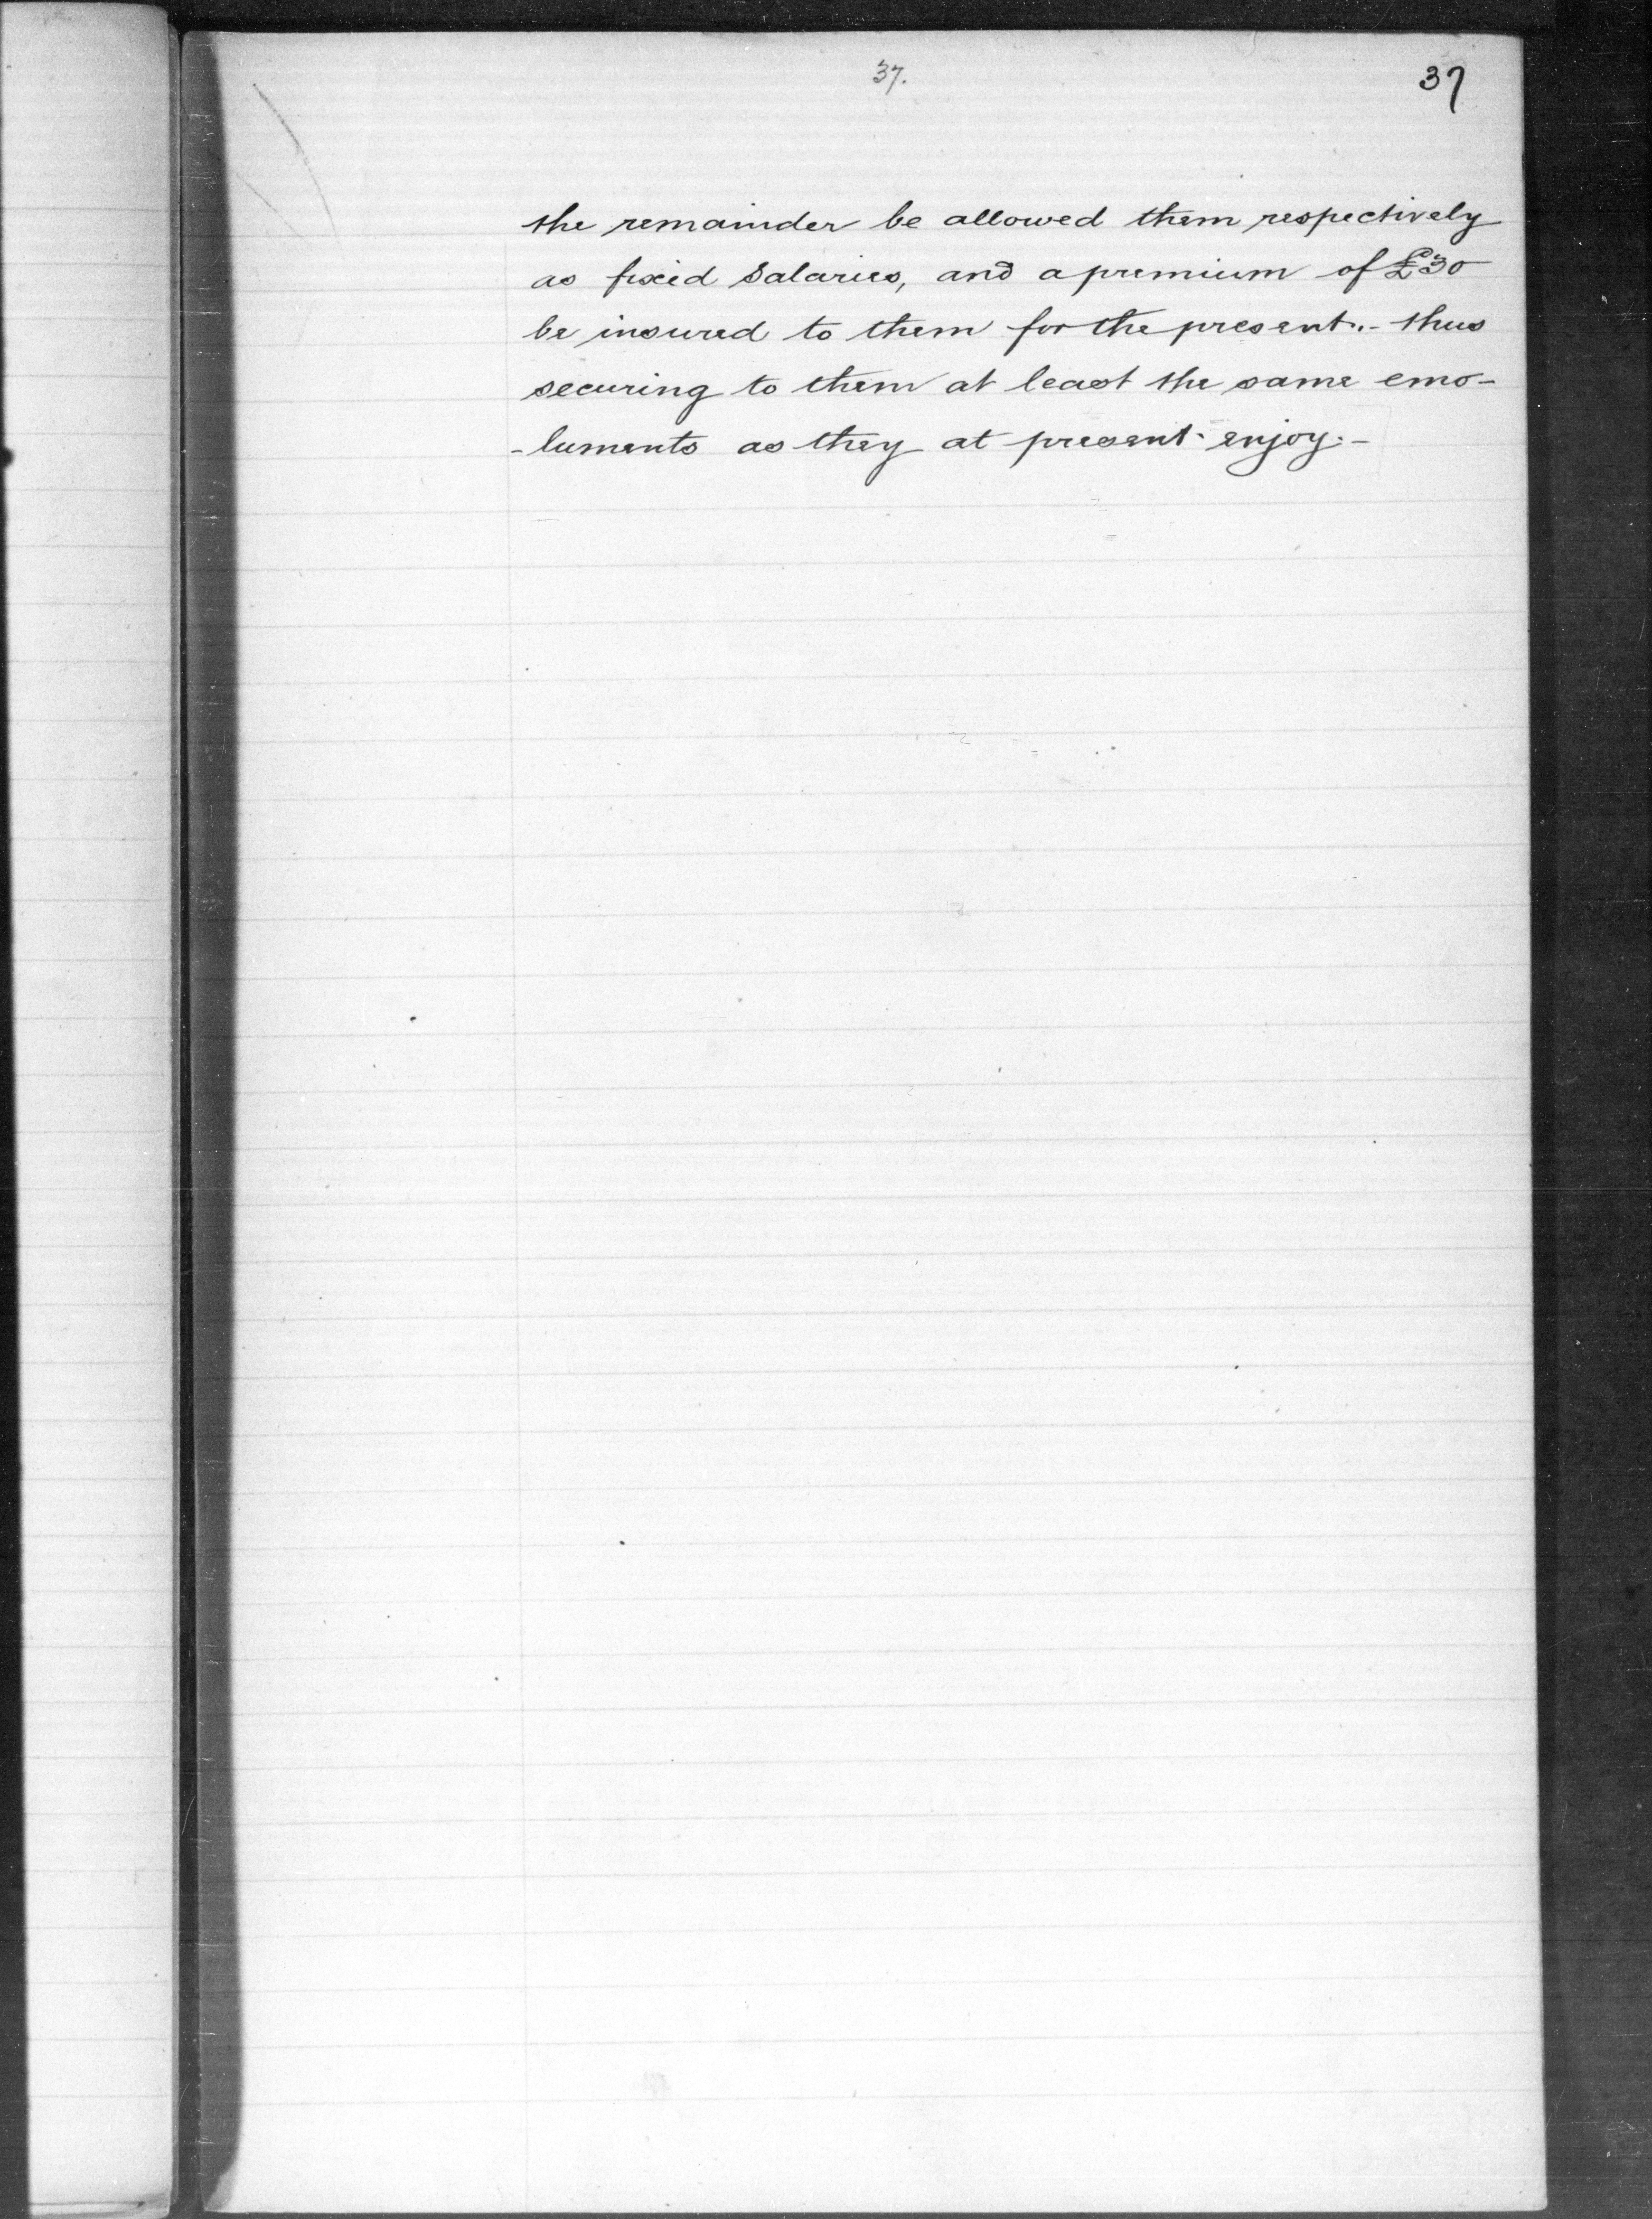 37.
37
the remainder be allowed them respectively
as fixed Salaries, and a premium of £30
be insured to them for the present.- thus
securing to them at least the same emo-
-luments as they at present enjoy.-